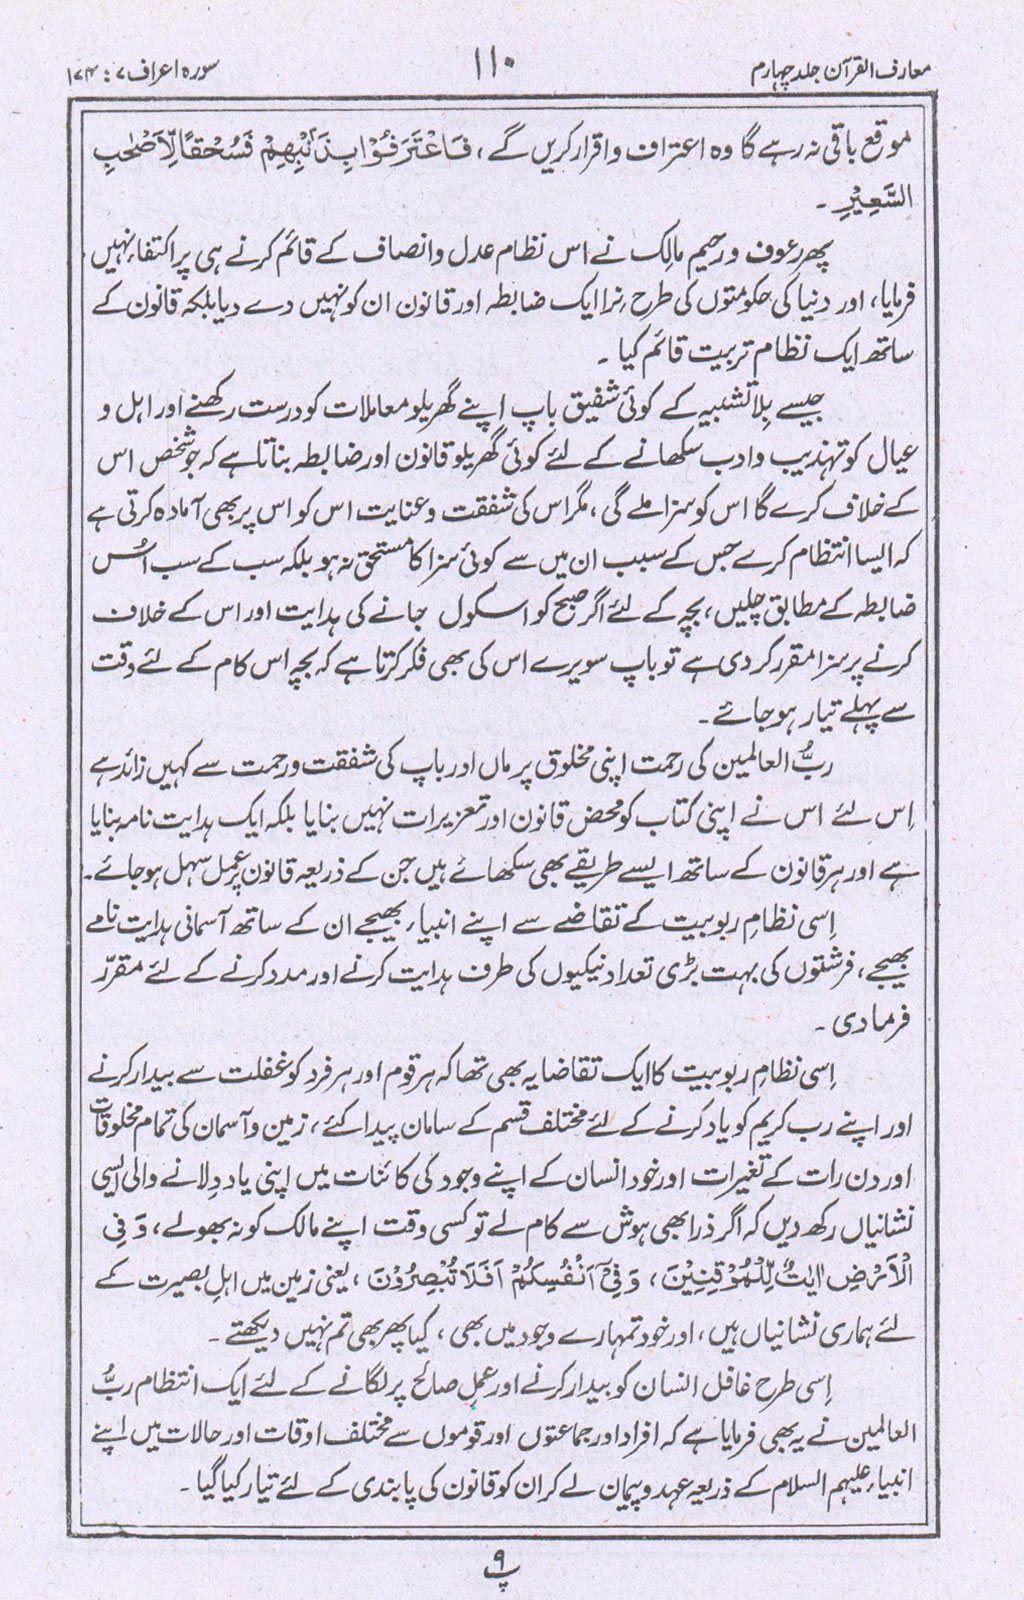 معارف القرآن جلد چہارم
۱۱۰
سورہ اعراف ۷ : ۱۷۴
موقع باقی نہ رہے گا وہ اعتراف و اقرار کریں گے، فَاعْتَرَفُوْا بِذَنْۢبِهِمْ فَسُحْقًا لِّاَصْحٰبِ
السَّعِيْرِ ۔
پھر رءوف و رحیم مالک نے اس نظام عدل و انصاف کے قائم کرنے ہی پر اکتفاء نہیں
فرمایا، اور دنیا کی حکومتوں کی طرح نِرا ایک ضابطہ اور قانون ان کو نہیں دے دیا بلکہ قانون کے
ساتھ ایک نظام تربیت قائم کیا ۔
جیسے بِلا تشبیہ کے کوئی شفیق باپ اپنے گھریلو معاملات کو درست رکھنے اور اہل و
عیال کو تہذیب و ادب سکھانے کے لئے کوئی گھریلو قانون اور ضابطہ بناتا ہے کہ جو شخص اس
کے خلاف کرے گا اس کو سزا ملے گی، مگر اس کی شفقت و عنایت اس کو اس پر بھی آمادہ کرتی ہے
کہ ایسا انتظام کرے جس کے سبب ان میں سے کوئی سزا کا مستحق نہ ہو بلکہ سب کے سب اُس
ضابطہ کے مطابق چلیں، بچہ کے لئے اگر صبح کو اسکول جانے کی ہدایت اور اس کے خلاف
کرنے پر سزا مقرر کر دی ہے تو باپ سویرے اس کی بھی فکر کرتا ہے کہ بچہ اس کام کے لئے وقت
سے پہلے تیار ہو جائے ۔
ربُّ العالمین کی رحمت اپنی مخلوق پر ماں اور باپ کی شفقت و رحمت سے کہیں زائد ہے
اِس لئے اس نے اپنی کتاب کو محض قانون اور تعزیرات نہیں بنایا بلکہ ایک ہدایت نامہ بنایا
ہے اور ہر قانون کے ساتھ ایسے طریقے بھی سکھائے ہیں جن کے ذریعہ قانون پر عمل سہل ہو جائے ۔
اِسی نظامِ ربوبیت کے تقاضے سے اپنے انبیاء بھیجے ان کے ساتھ آسمانی ہدایت نامے
بھیجے، فرشتوں کی بہت بڑی تعداد نیکیوں کی طرف ہدایت کرنے اور مدد کرنے کے لئے مقرّر
فرما دی ۔
اِسی نظامِ ربوبیت کا ایک تقاضا یہ بھی تھا کہ ہر قوم اور ہر فرد کو غفلت سے بیدار کرنے
اور اپنے رب کریم کو یاد کرنے کے لئے مختلف قسم کے سامان پیدا کئے، زمین و آسمان کی تمام مخلوقات
اور دن رات کے تغیرات اور خود انسان کے اپنے وجود کی کائنات میں اپنی یاد دِلانے والی ایسی
نشانیاں رکھ دیں کہ اگر ذرا بھی ہوش سے کام لے تو کسی وقت اپنے مالک کو نہ بھولے، وَ فِي
الْاَرْضِ اٰيٰتٌ لِّلْمُوْقِنِيْنَ، وَ فِيْٓ اَنْفُسِكُمْ اَفَلَا تُبْصِرُوْنَ، یعنی زمین میں اہلِ بصیرت کے
لئے ہماری نشانیاں ہیں، اور خود تمہارے وجود میں بھی، کیا پھر بھی تم نہیں دیکھتے ۔
اِسی طرح غافل انسان کو بیدار کرنے اور عملِ صالح پر لگانے کے لئے ایک انتظام ربُّ
العالمین نے یہ بھی فرمایا ہے کہ افراد اور جماعتوں اور قوموں سے مختلف اوقات اور حالات میں اپنے
انبیاء علیہم السلام کے ذریعہ عہد و پیمان لے کر ان کو قانون کی پابندی کے لئے تیار کیا گیا ۔
پ ۹